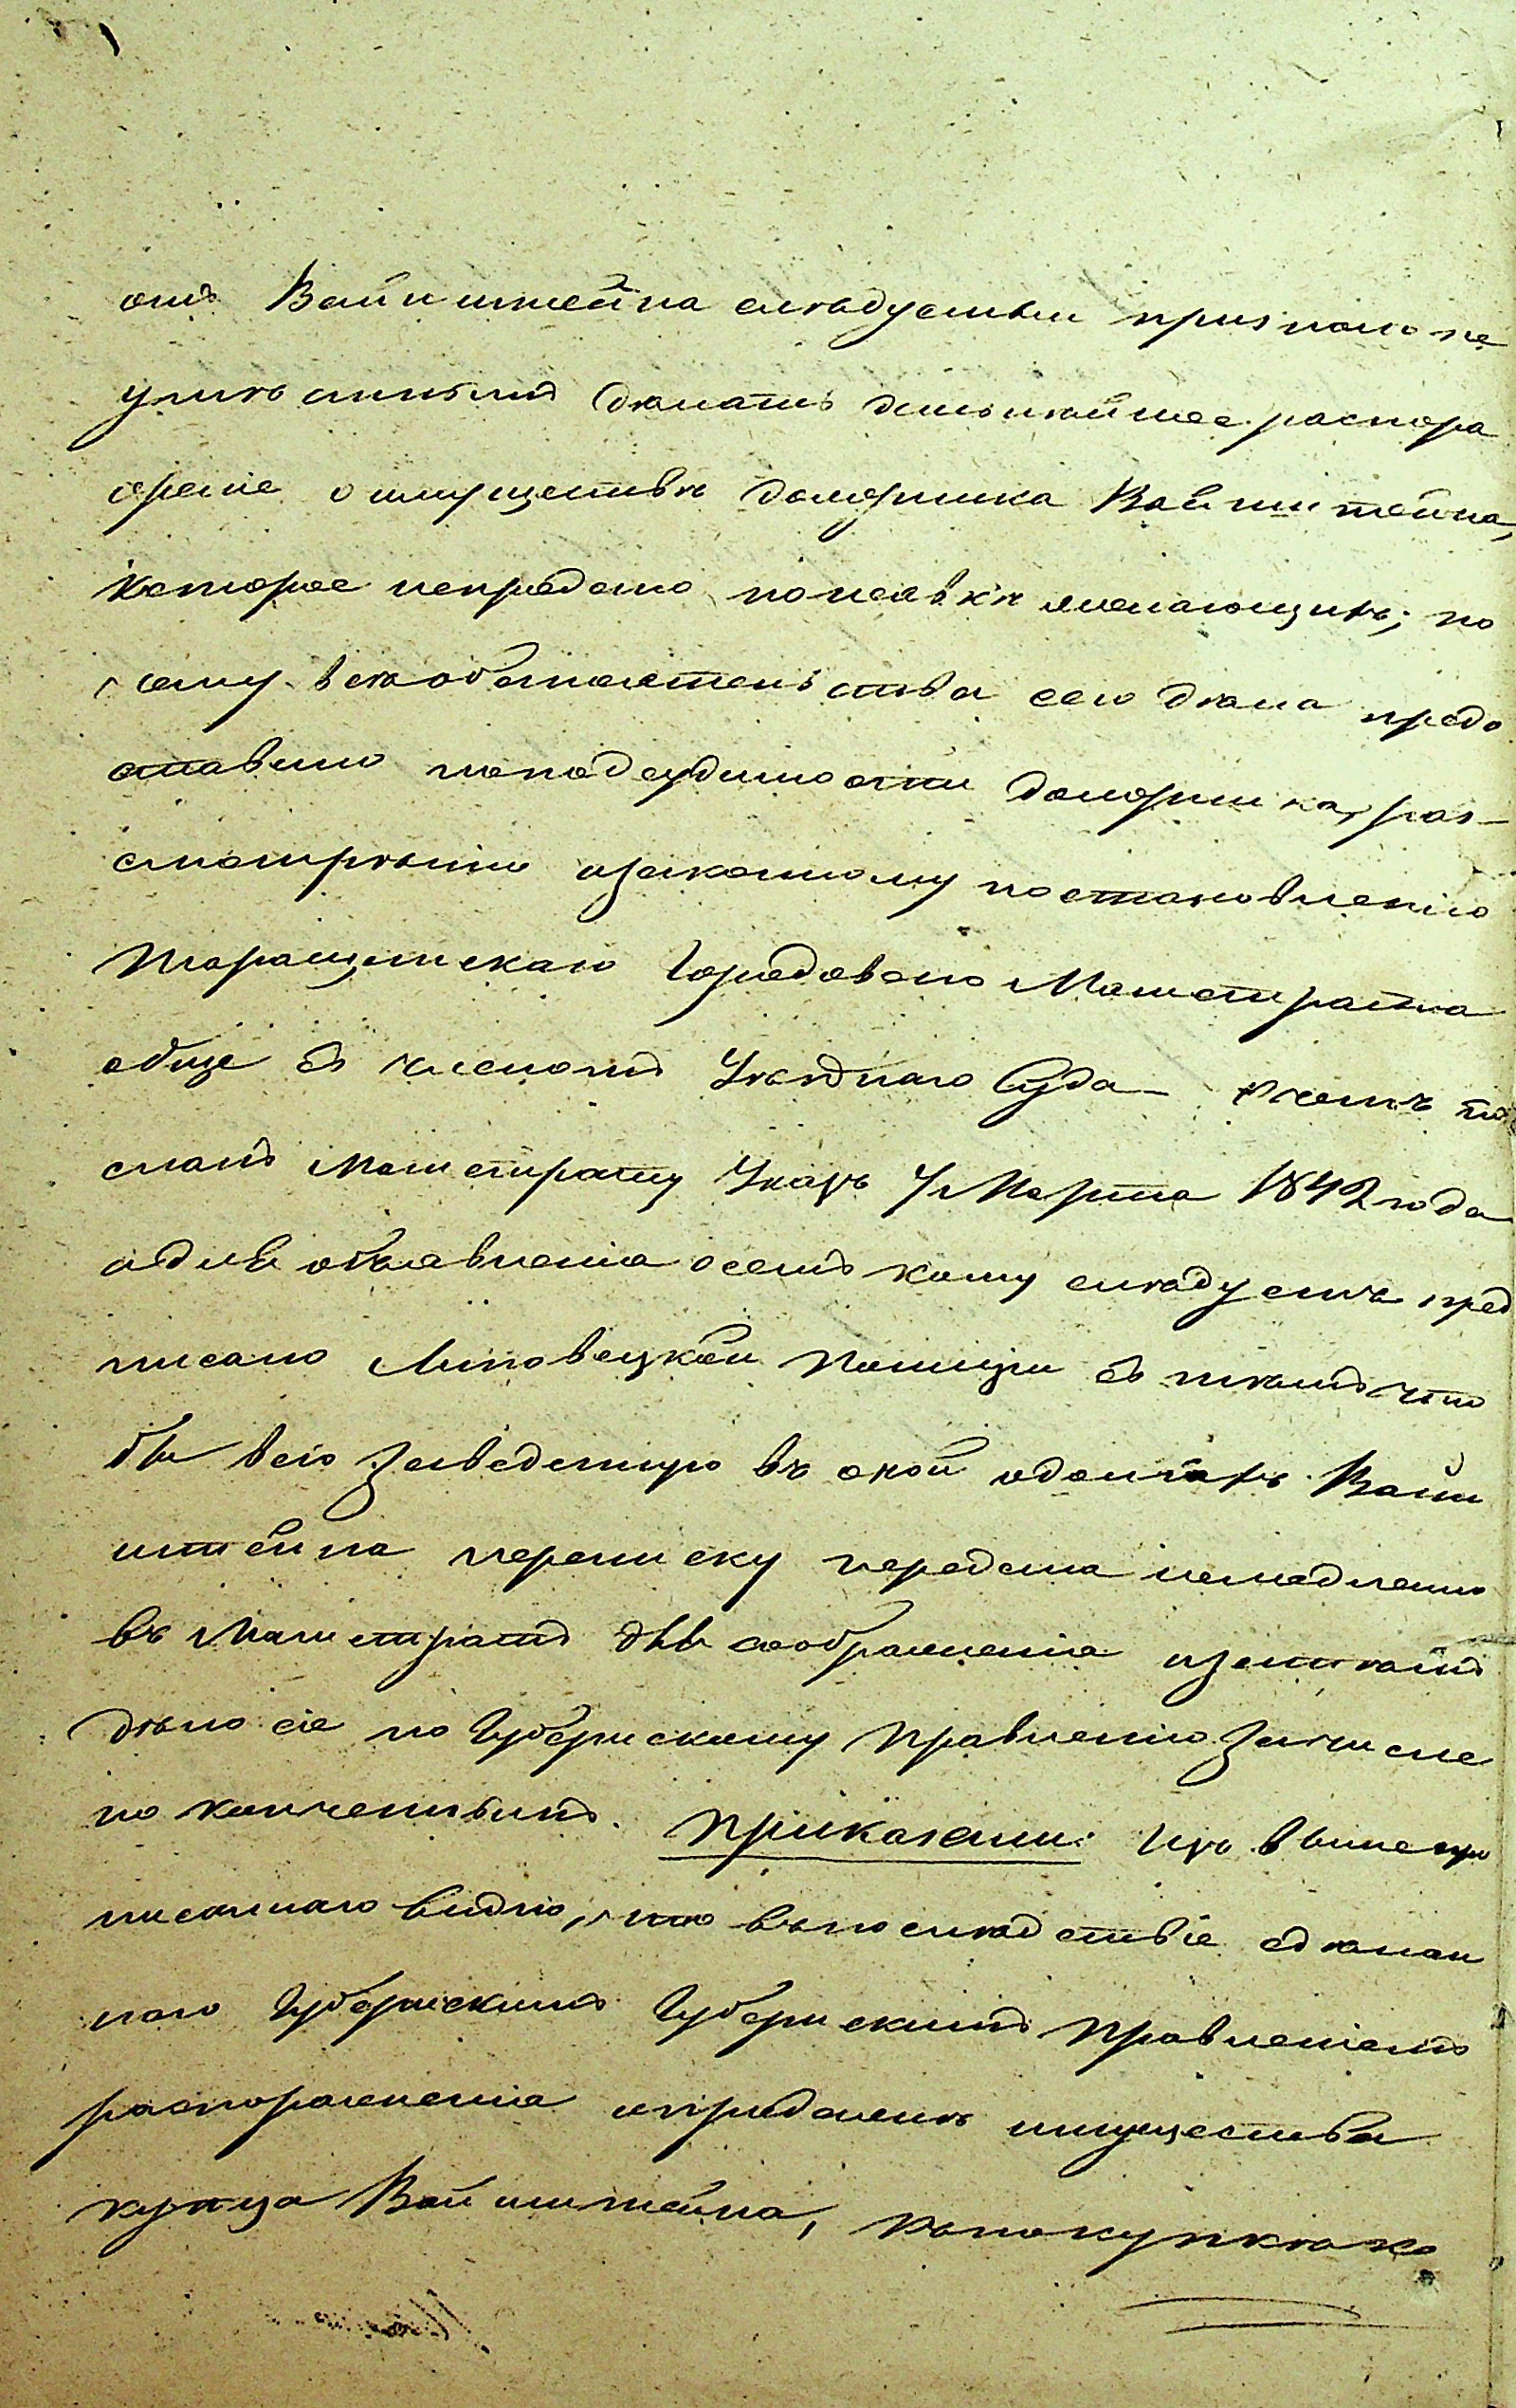 отъ Вайнштейна слѣдуемыи признано не
умѣстнымъ дѣлать дальнѣйшее распоря
женіе о имуществѣ должника Вайнштейна,
которое непродано понеявкѣ желающихъ; по
чему всѣ обстоятельства сего дѣла предо
ставлено неподсудимости должника, раз-
смотрѣнію изаконному постановленію
Таращанскаго Городоваго Магистрата
обще съ членомъ Уѣзднаго Суда – о чемъ по
сланъ Магистрату Указъ 7 Марта 1842 года
адля объявленія осемъ кому слѣдуетъ пред
писано Липовецкой Полиціи съ тѣмъ что
бы всю заведенную въ оной одолгахъ Вайн
штейна переписку передала немедленно
въ Магистратъ для соображенія изатѣмъ
дѣло сіе по Губернскому Правленію зачисле
но конченнымъ. Приказали: Изъ вышепро
писаннаго видно, что въпослѣдствіе сдѣлан
наго Губернскимъ Губернскимъ Правленіемъ
распоряженія опродажѣ имущества
купца Вайнштейна, къпокупкѣ ко